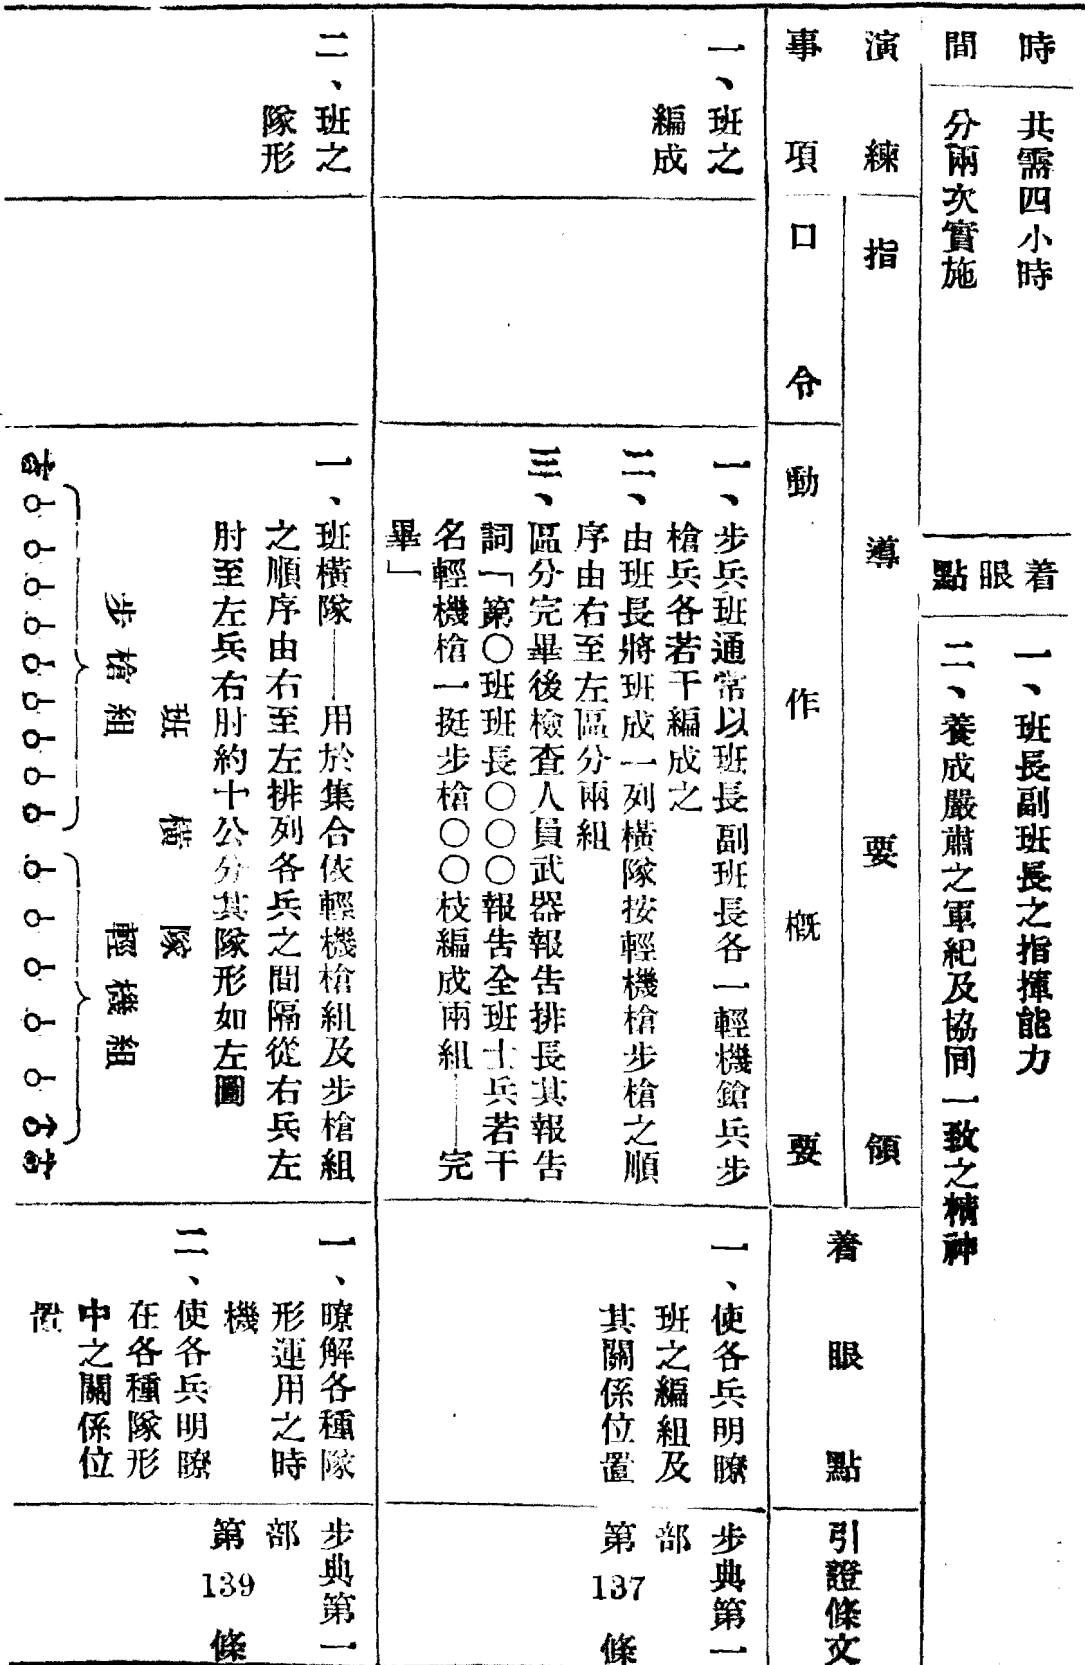 時間
共需四小時
分兩次實施
着眼點
一、班長副班長之指揮能力
二、養成嚴肅之軍紀及協同一致之精神
演練事項
指導要領
口令
動作概要
着眼點
引證條文
一、班之
編成
一、步兵班通常以班長副班長各一輕機鎗兵步
槍兵各若干編成之
二、由班長將班成一列橫隊按輕機槍步槍之順
序由右至左區分兩組
三、區分完畢後檢查人員武器報告排長其報告
詞「第〇班班長〇〇〇報告全班士兵若干
名輕機槍一挺步槍〇〇枝編成兩組——完
畢」
一、使各兵明瞭
班之編組及
其關係位置
步典第一
部
第137條
二、班之
隊形
一、班橫隊——用於集合依輕機槍組及步槍組
之順序由右至左排列各兵之間隔從右兵左
肘至左兵右肘約十公分其隊形如左圖
班橫隊
步槍組
輕機組
一、瞭解各種隊
形運用之時
機
二、使各兵明瞭
在各種隊形
中之關係位
置
步典第一
部
第139條